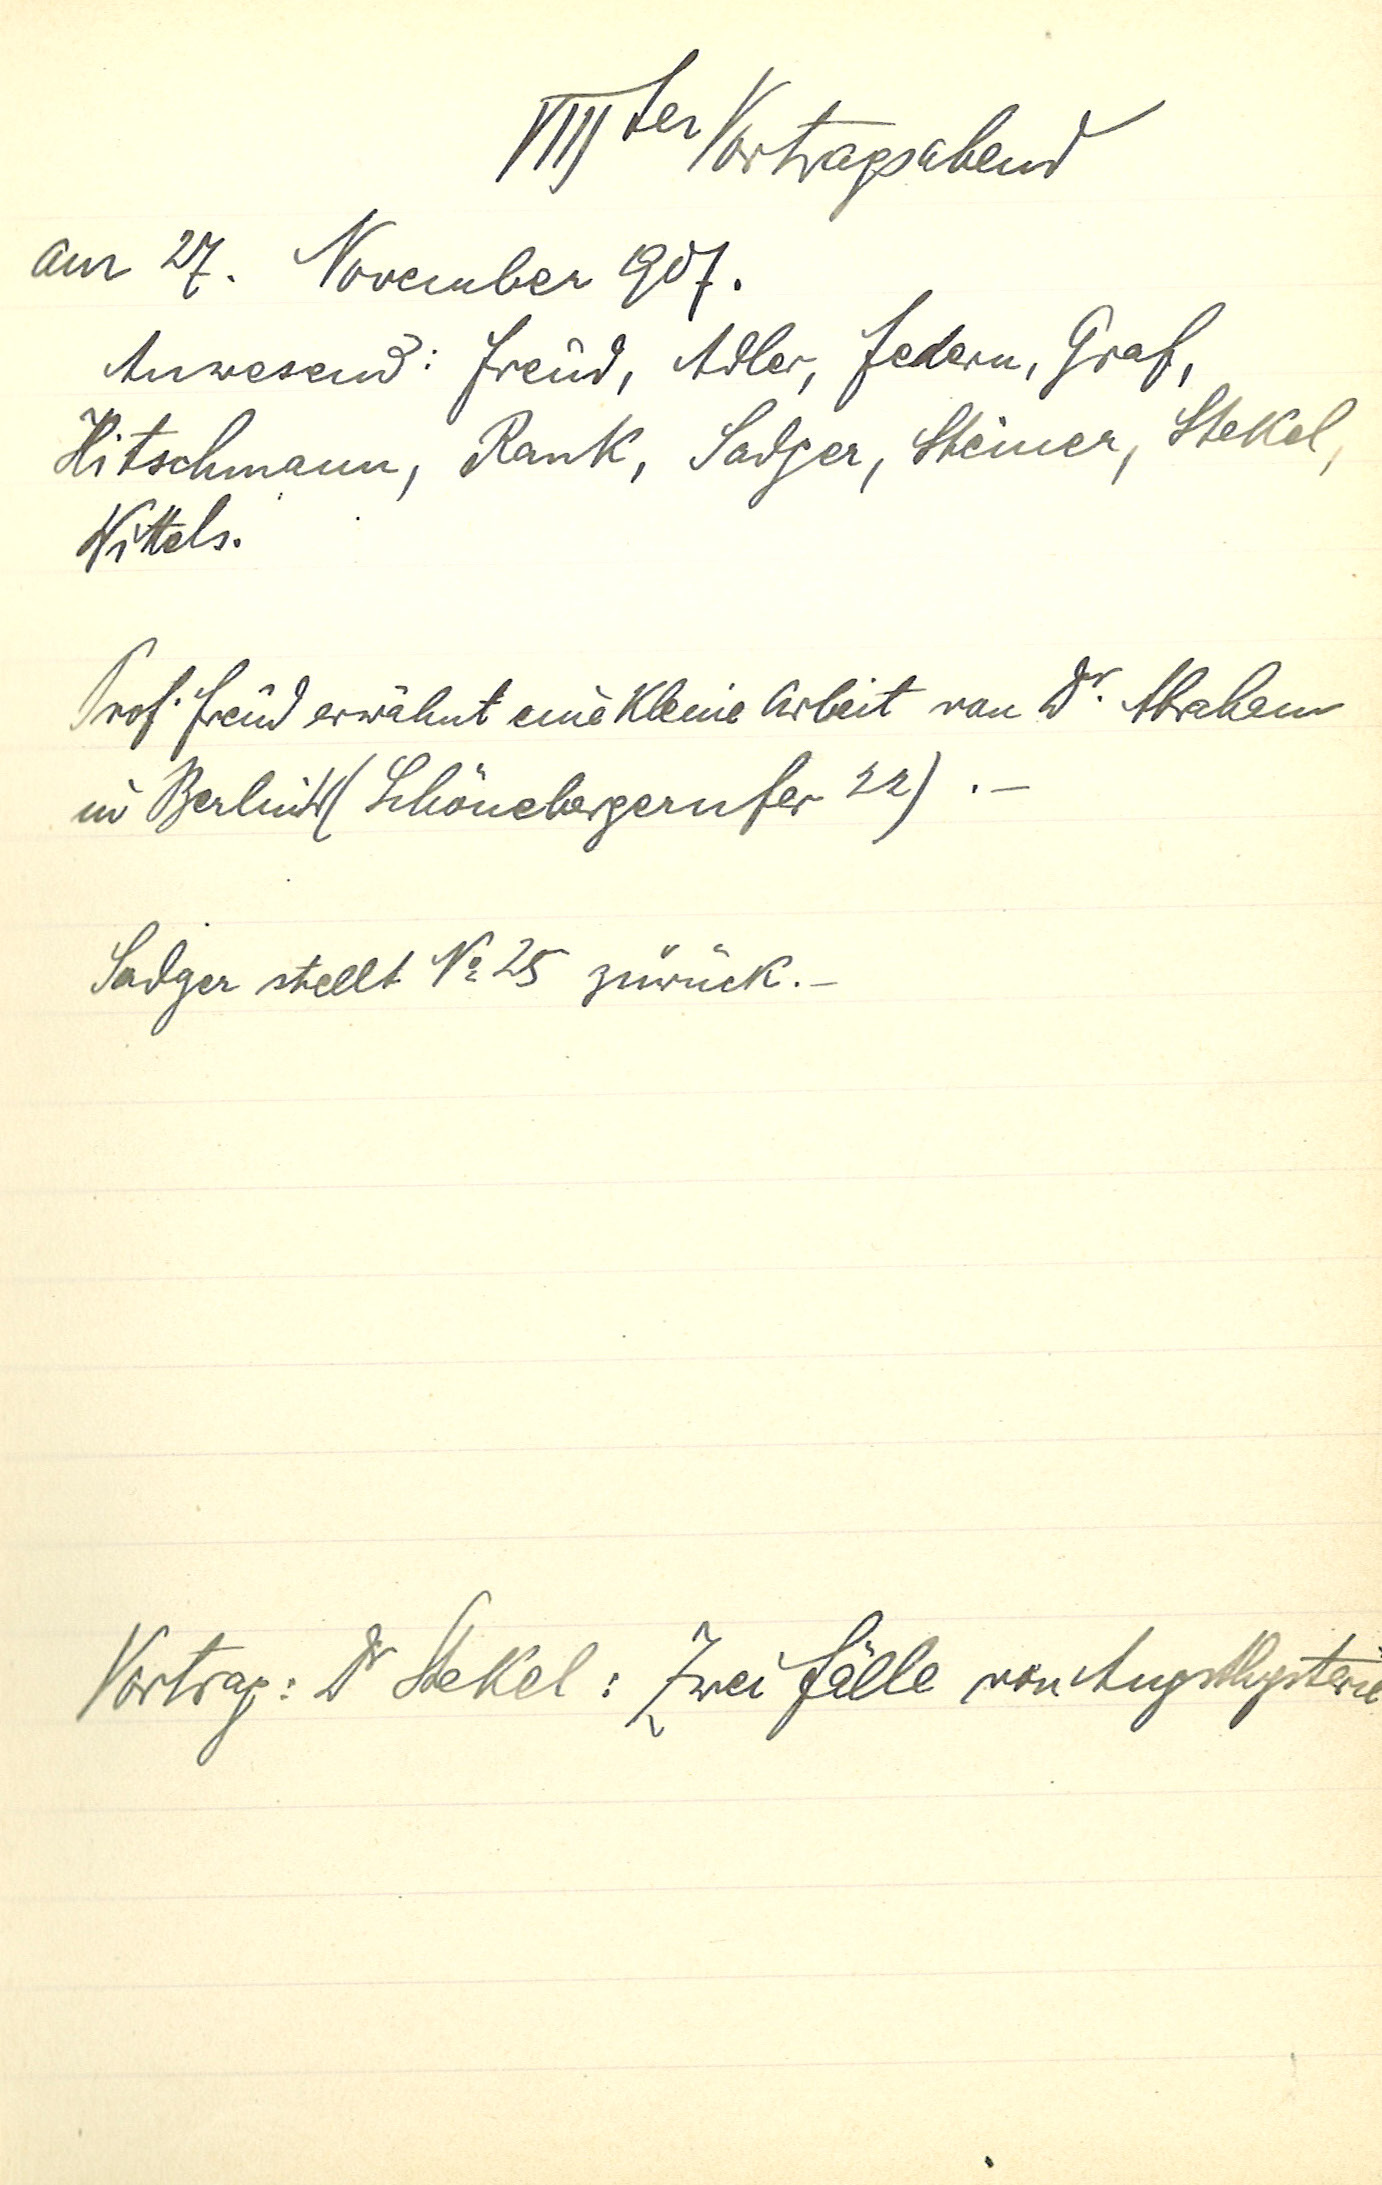 VIIIter Vortragsabend
am 27. November 907.
Anwesend: Freud, Adler, Federn, Graf,
Hitschmann, Rank, Sadger, Steiner, Stekel,
Wittels.
Prof. Freud erwähnt eine kleine Arbeit von Dr. Abraham
in Berlin (Schönebergerufer 22) . –
Sadger stellt No 25 zurück. –
Vortrag: Dr Stekel: Zwei Fälle von Angsthysterie